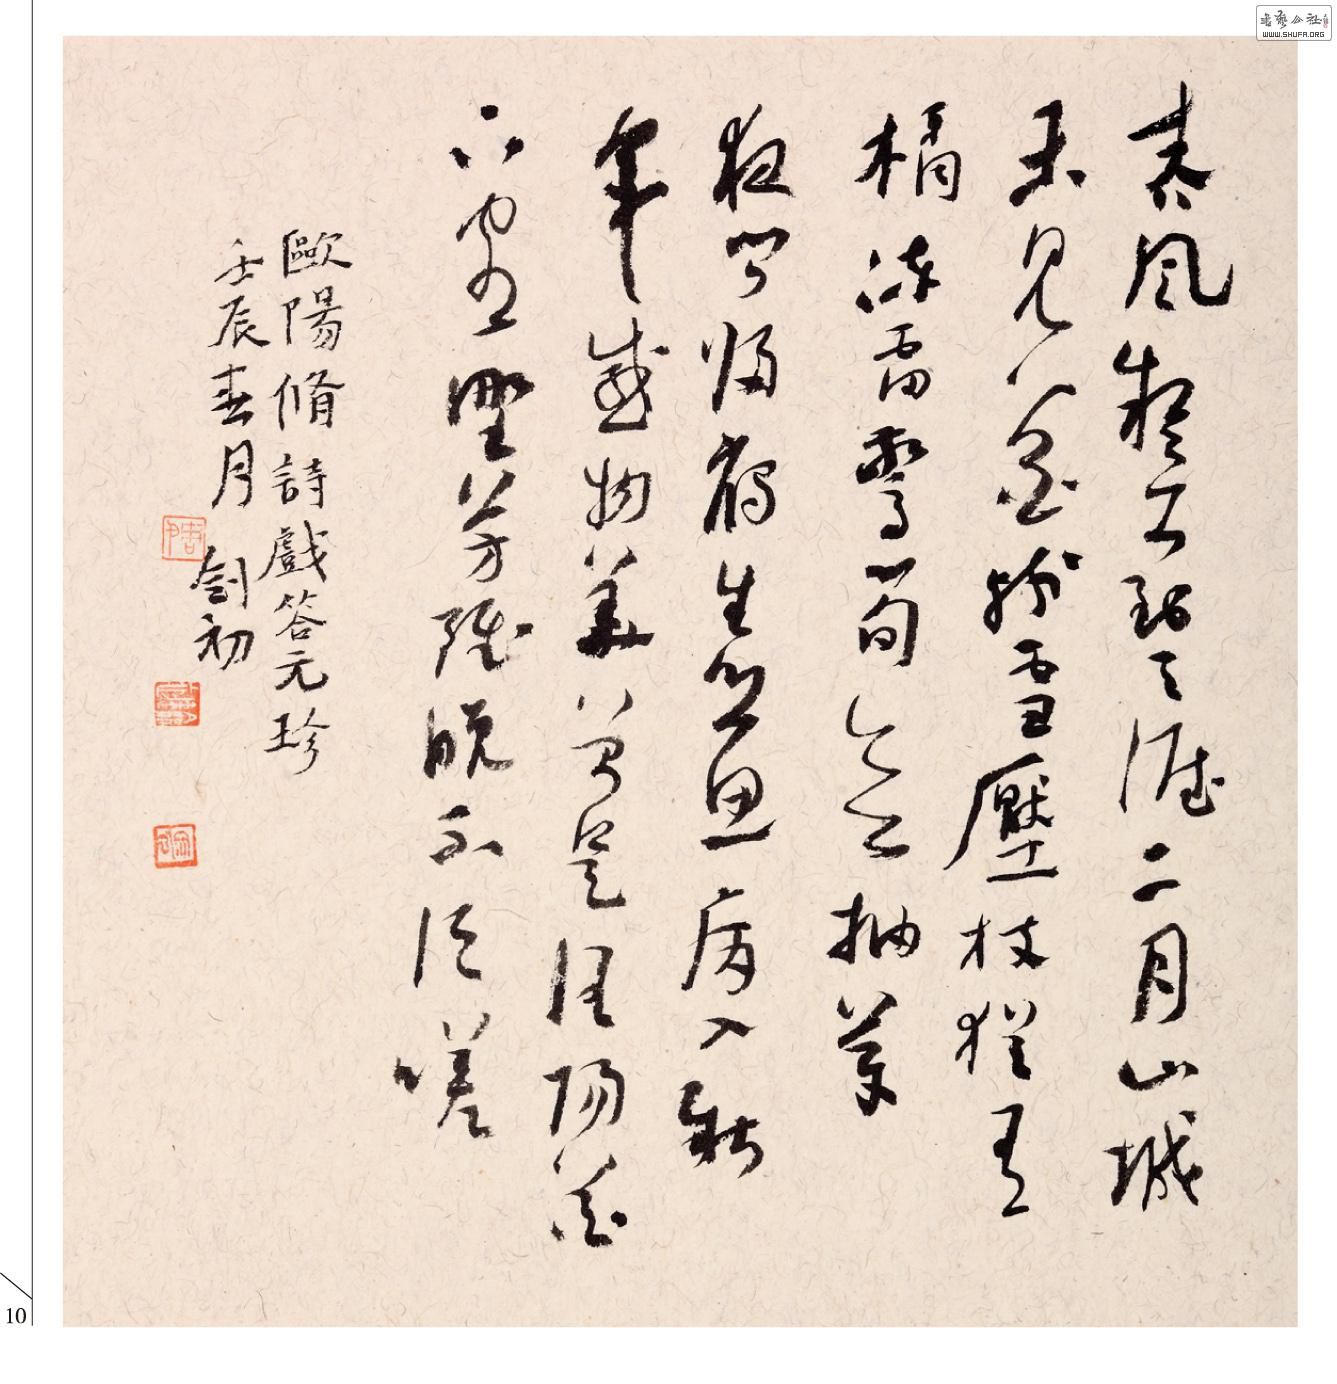 春風疑不到天涯二月山城
未見花殘雪壓枝猶有
橘凍雷驚筍欲抽芽
夜聞歸雁生鄉思病入新
年感物華曾是洛陽花
下客野芳雖晚不須嗟
歐陽脩詩戲答元珍
壬辰春月 劍初
10
書藝公社
WWW.SHUFA.ORG